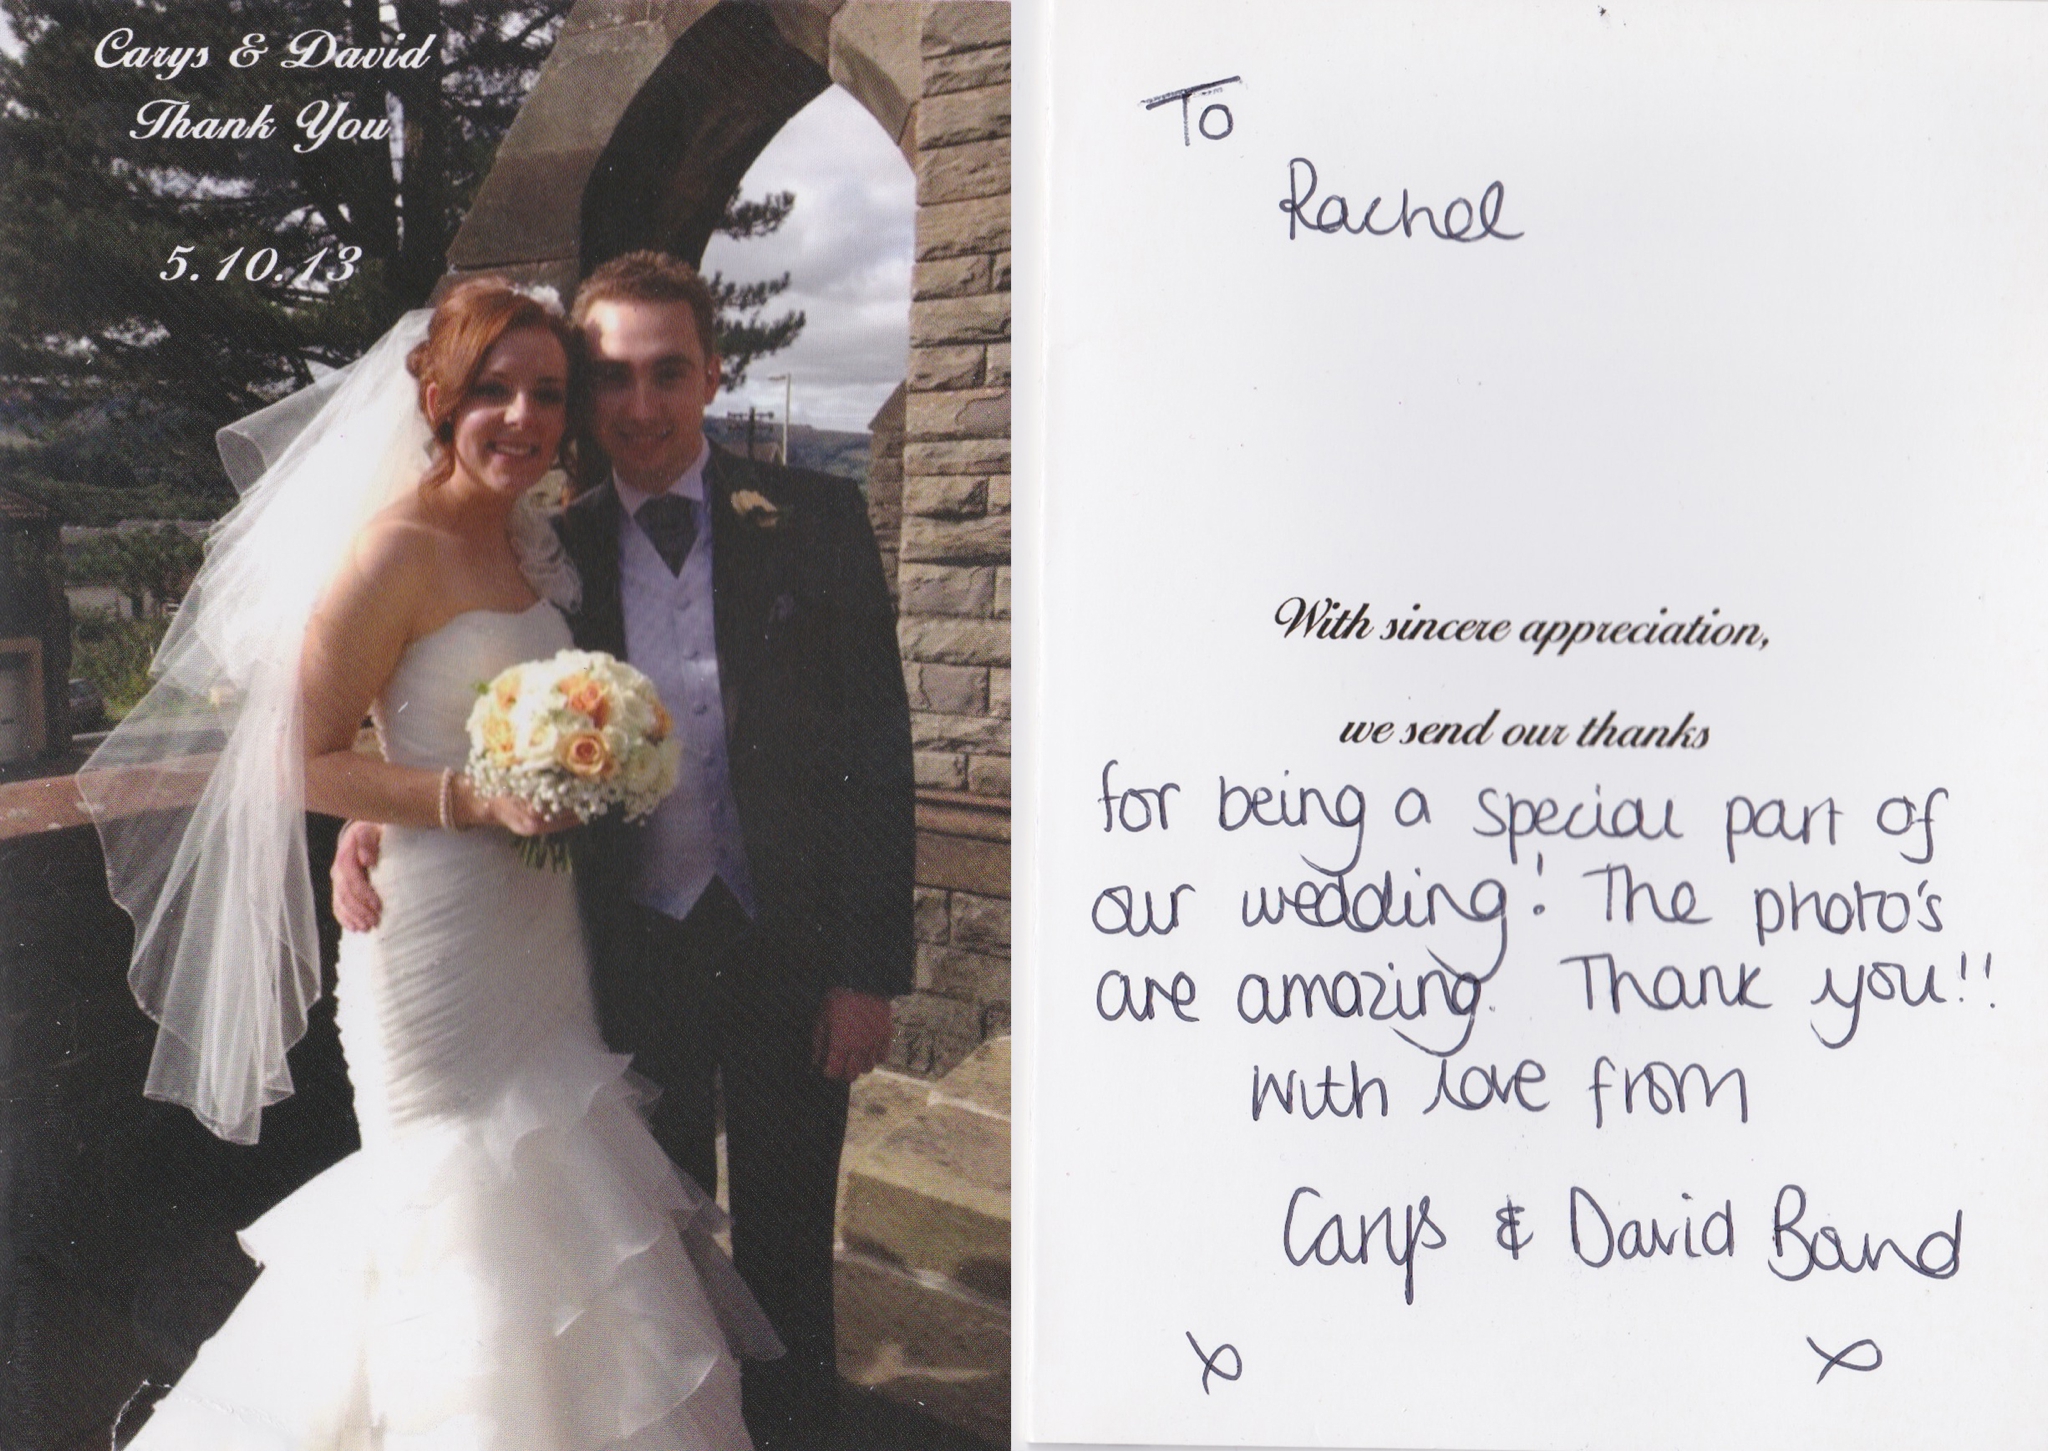 Carys & David
Thank You
5.10.13
To
Rachel
With sincere appreciation,
we send our thanks
for being a special part of
our wedding! The photo's
are amazing. Thank you!!
With love from
Carys & David Band
x x